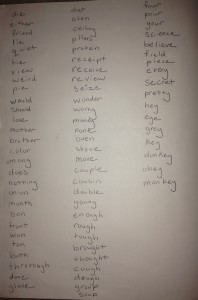 die
either
friend
lie
quiet
pier
view
weird
pie
would
should
love
mother
brother
color
among
does
nothing
onion
month
son
front
won
ton
both
thorough
done
glove
diet
alien
ceiling
pliers
protein
receipt
receive
review
seize
wonder
worry
money
none
oven
shove
more
couple
cousin
double
young
enough
rough
tough
brought
thought
cough
dough
group
soup
four
pour
your
science
believe
field
piece
envy
secret
pretty
hey
eye
grey
key
donkey
obey
monkey